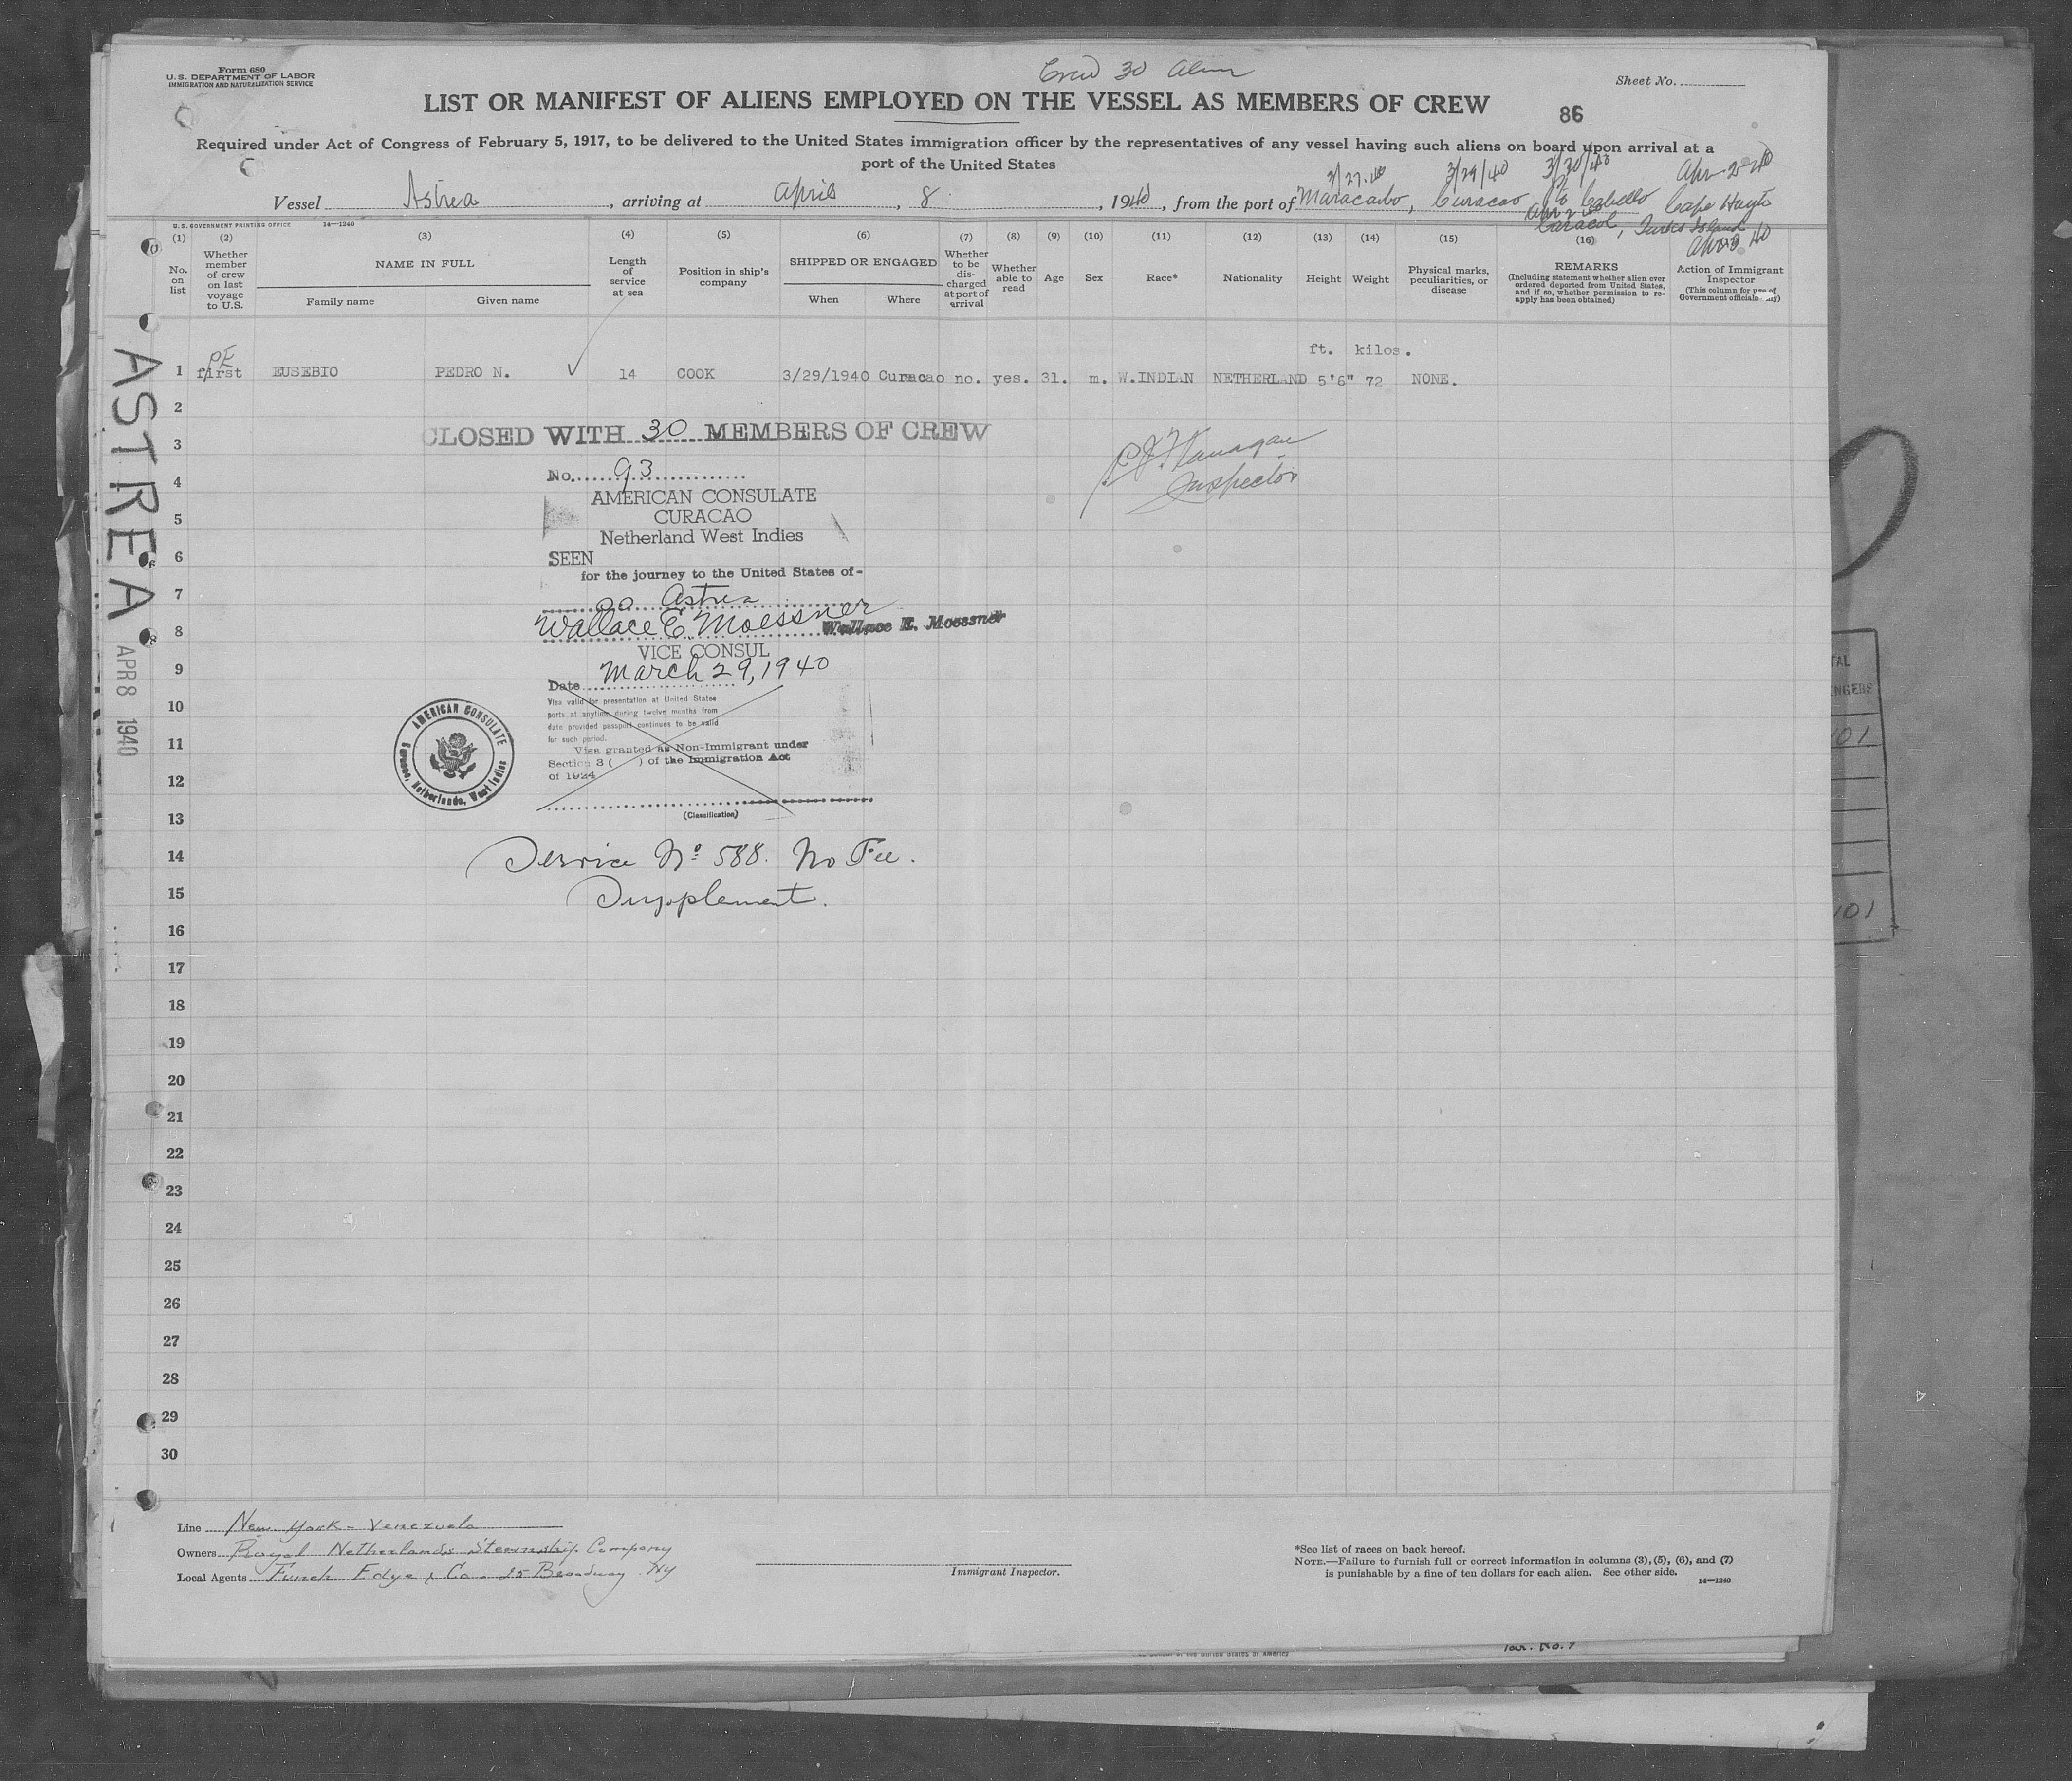 Form 680
U. S. DEPARTMENT OF LABOR
IMMIGRATION AND NATURALIZATION SERVICE
Crew 30 Alien
Sheet No.
LIST OR MANIFEST OF ALIENS EMPLOYED ON THE VESSEL AS MEMBERS OF CREW
86
Required under Act of Congress of February 5, 1917, to be delivered to the United States immigration officer by the representatives of any vessel having such aliens on board upon arrival at a
port of the United States
3/27.40 3/29/40 3/30/40 Apr-2-40
Vessel Astrea, arriving at April, 8, 1940, from the port of Maracaibo, Curacao Pto Cabello Cape Hayti
Caracol, Turks Island
U. S. GOVERNMENT PRINTING OFFICE 14—1240
(1) (2) (3) (4) (5) (6) (7) (8) (9) (10) (11) (12) (13) (14) (15) (16)
No. on list
Whether member of crew on last voyage to U.S.
NAME IN FULL
Family name
Given name
Length of service at sea
Position in ship's company
SHIPPED OR ENGAGED
When
Where
Whether to be dis- charged at port of arrival
Whether able to read
Age
Sex
Race*
Nationality
Height
Weight
Physical marks, peculiarities, or disease
REMARKS
(Including statement whether alien ever ordered deported from United States, and if so, whether permission to re- apply has been obtained)
Action of Immigrant Inspector
(This column for use of Government officials only)
ft. kilos.
PE
1 first EUSEBIO PEDRO N. ✓ 14 COOK 3/29/1940 Curacao no. yes. 31. m. W.INDIAN NETHERLAND 5'6" 72 NONE.
2
3
4
5
6
7
8
9
10
11
12
13
14
15
16
17
18
19
20
21
22
23
24
25
26
27
28
29
30
ASTREA
APR 8 1940
CLOSED WITH 30 MEMBERS OF CREW
Flanagan
Inspector
No. 93
AMERICAN CONSULATE
CURACAO
Netherland West Indies
SEEN
for the journey to the United States of-
ss Astrea
Wallace E. Moessner Wallace E. Moessner
VICE CONSUL
Date March 29, 1940
Visa valid for presentation at United States
ports at anytime during twelve months from
date provided passport continues to be valid
for such period.
Visa granted as Non-Immigrant under
Section 3 ( ) of the Immigration Act
of 1924
(Classification)
AMERICAN CONSULATE
Curacao, Netherlands, West Indies
Service No 588. No Fee.
Supplement.
Line New York - Venezuela
Owners Royal Netherlands Steamship Company
Local Agents Funch Edye & Co. 25 Broadway. NY
Immigrant Inspector.
*See list of races on back hereof.
NOTE.—Failure to furnish full or correct information in columns (3), (5), (6), and (7)
is punishable by a fine of ten dollars for each alien. See other side.
14—1240